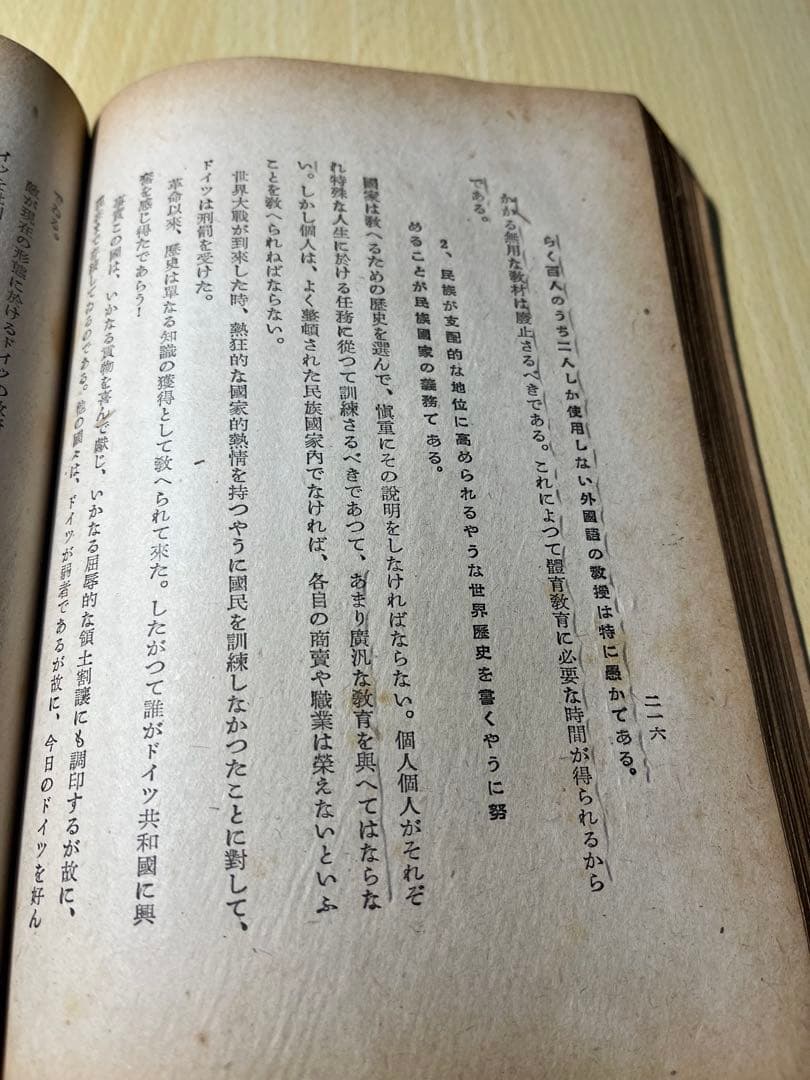 二一六
らく百人のうち二人しか使用しない外國語の敎授は特に愚かである。
かかる無用な敎材は廢止さるべきである。これによつて體育敎育に必要な時間が得られるから
である。
2、民族が支配的な地位に高められるやうな世界歷史を書くやうに努
めることが民族國家の義務である。
國家は敎へるための歷史を選んで、愼重にその說明をしなければならない。個人個人がそれぞ
れ特殊な人生に於ける任務に從つて訓練さるべきであつて、あまり廣汎な敎育を與へてはならな
い。しかし個人は、よく整頓された民族國家內でなければ、各自の商賣や職業は榮えないといふ
ことを敎へられねばならない。
世界大戰が到來した時、熱狂的な國家的熱情を持つやうに國民を訓練しなかつたことに對して、
ドイツは刑罰を受けた。
革命以來、歷史は單なる知識の獲得として敎へられて來た。したがつて誰がドイツ共和國に興
奮を感じ得たであらう!
事實この國は、いかなる貢物を喜んで獻じ、いかなる屈辱的な領土割讓にも調印するが故に、
してゐるのである。他の國々は、ドイツが弱者であるが故に、今日のドイツを好ん
である。
敵が現在の形態に於けるドイツの